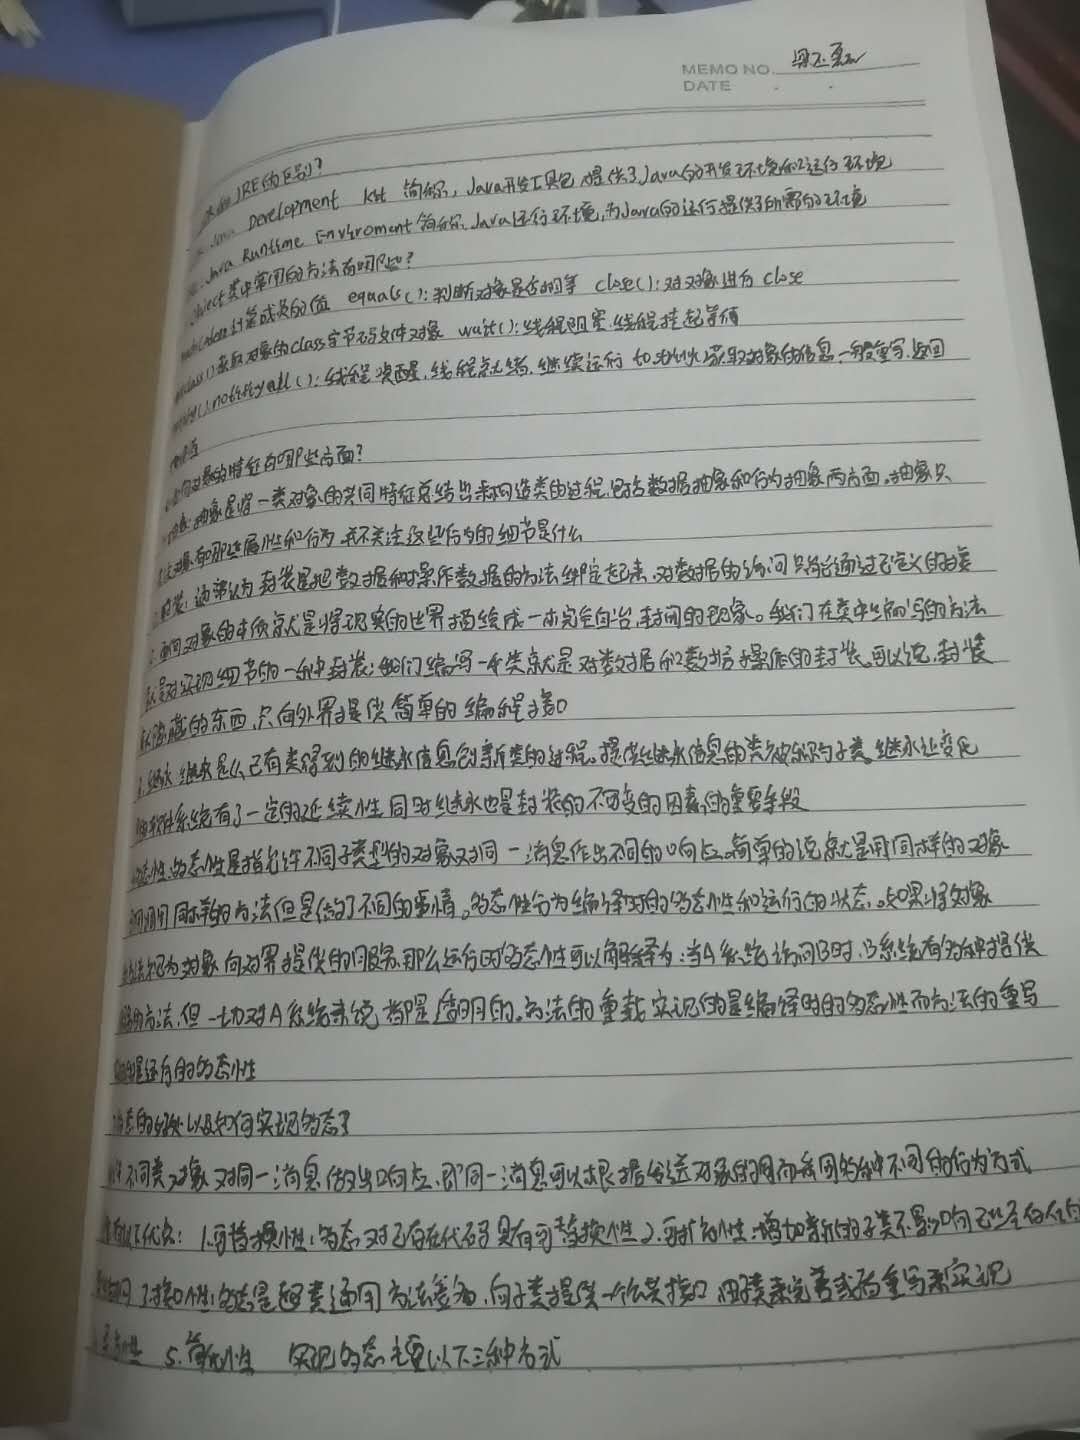 MEMO NO.
DATE
JRE的区别?
Java Development Kit 简称, Java开发工具包,提供了Java的开发环境和运行环境
Java Runtime Enviroment 简称, Java运行环境,为Java的运行提供了所需的环境
Object类中常用的方法有哪些?
计算成员的值 equals():判断对象是否相等 close():对对象进行close
获取对象的class字节码文件对象 wait():线程阻塞,线程挂起等待
notifyall():线程唤醒,线程就绪,继续运行 获取对象的信息,一般重写,返回
对象的特征有哪些方面?
抽象是将一类对象的共同特征总结出来构造类的过程,包括数据抽象和行为抽象两方面。抽象只
有哪些属性和行为,并不关注这些行为的细节是什么
封装:通常认为封装是把数据和操作数据的方法绑定起来,对数据的访问只能通过已定义的接
面向对象的本质就是将现实的世界描绘成一系完全自治,封闭的现象。我们在类中编写的方法
就是对实现细节的一种封装;我们编写一个类就是对数据和数据操作的封装。可以说,封装
隐藏的东西,只向外界提供简单的编程接口
继承:继承是从已有类得到的继承信息创新类的过程。提供继承信息的类被称为子类。继承让变化
软件系统有了一定的延续性,同时继承也是封装的不可变的因素的重要手段
多态性:多态性是指允许不同子类型的对象对同一消息作出不同的响应。简单的说就是用同样的对象
调用同样的方法但是做了不同的事情。多态性分为编译时的多态性和运行的状态。如果将对象
视为对象向对界提供的服务,那么运行时的多态性可以解释为:当A系统访问B时,B系统有多种提供
的方法,但一切对A系统来说都是透明的。方法的重载实现的是编译时的多态性而方法的重写
是运行的多态性
多态的好处以及如何实现多态?
不同类对象对同一消息做出响应,即同一消息可以根据发送对象的用而采用多种不同的行为方式
有以下优点:1.可替换性:多态对已存在代码具有可替换性2.可扩充性:增加新的子类不影响已经存在
3.接口性:多态是超类通用方法签名,向子类提供一个公共接口,由子类来完善或者重写来实现
5.简化性 实现多态主要以下三种方式